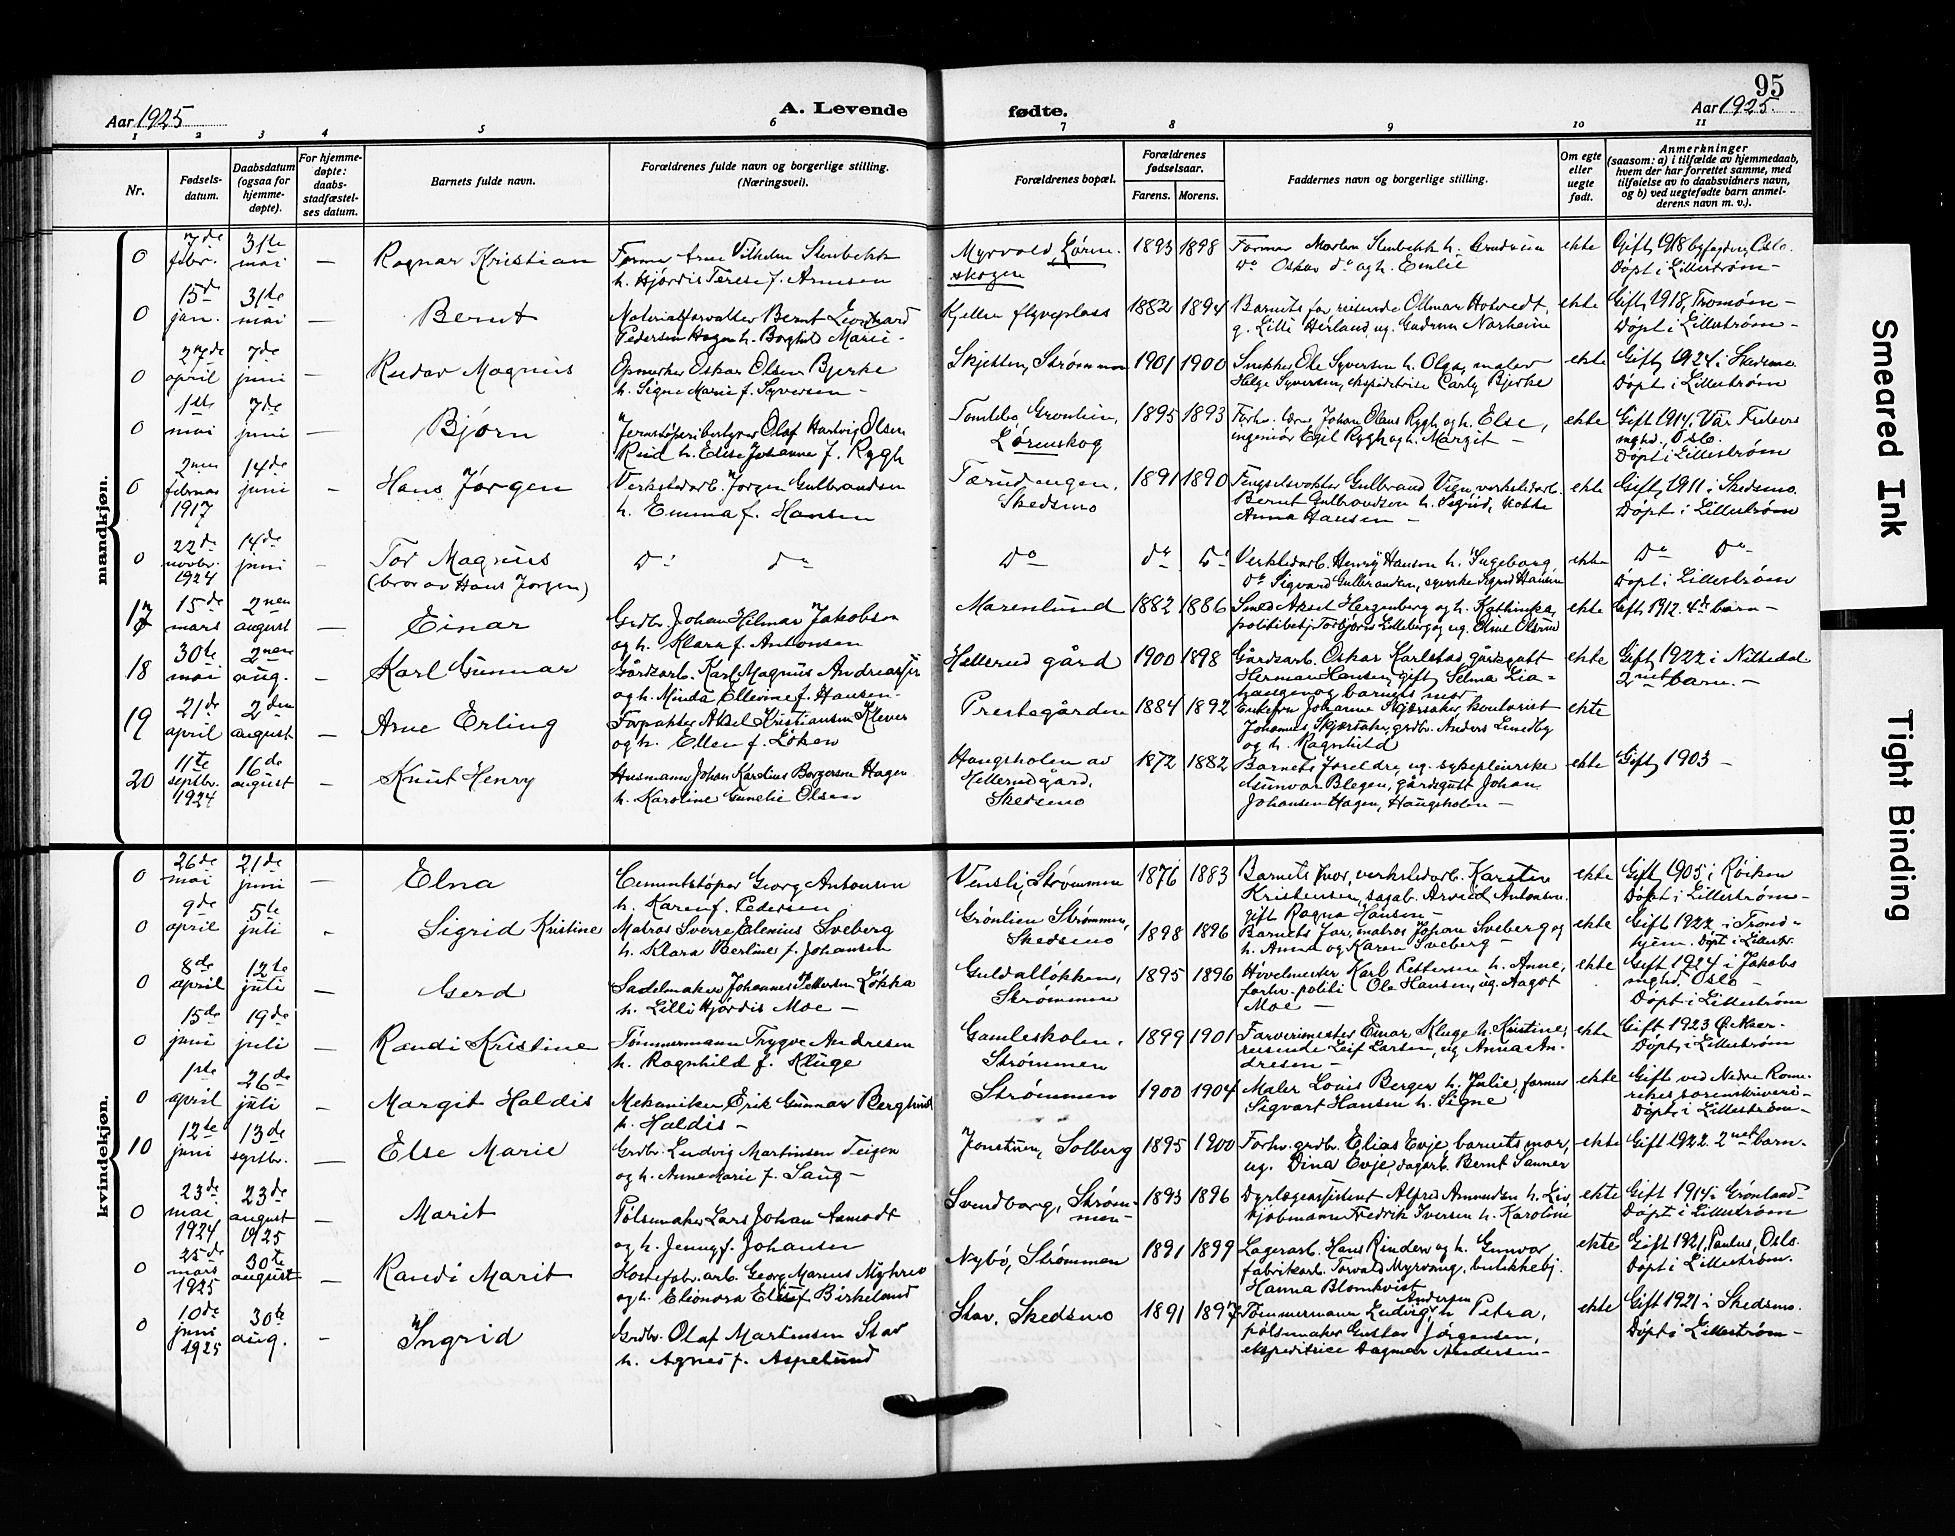 95
Aar 1925 A. Levende fødte. Aar 1925
1 2 3 4 5 6 7 8 9 10 11
Nr. Fødsels-datum. Daabsdatum (ogsaa for hjemme-døpte). For hjemme-døpte: daabs-stadfæstel-ses datum. Barnets fulde navn. Forældrenes fulde navn og borgerlige stilling. (Næringsvei). Forældrenes bopæl. Forældrenes fødselsaar. Farens. Morens. Faddernes navn og borgerlige stilling. Om egte eller uegte født. Anmerkninger (saasom: a) i tilfælde av hjemmedaab, hvem der har forrettet samme, med tilføielse av to daabsvidners navn, og b) ved uegtefødte barn anmel-derens navn m. v.).
mandkjøn.
0 7de febr. 31te mai – Ragnar Kristian Former Arne Vilhelm Stenbekk h. Hjørdis Terese f. Arnesen Myrvold, Lørenskogen 1893 1898 Former Morten Stenbekk h. do Oskar do og h. Emlie ekte Gift 1918 byfogden, Oslo. Døpt i Lillestrøm –
0 15de jan. 31te mai – Bernt Materialforvalter Bernt Leonhard Pedersen Hagen h. Boghild Marie – Kjeller flyveplass 1882 1894 Barnets far, reisende Ottmar Hotvedt, g. Lilli Herland, ug. Gudrun Narheim ekte Gift 1918, Tromøen – Døpt i Lillestrøm –
0 27de april 7de juni – Reidar Magnus Opmerker Oskar Olsen Bjerke h. Signe Marie f. Syversen – Skjetten, Strømmen 1901 1900 Snekker Ole Syversen h. Olga, maler Helge Syversen, ekspeditrise Carly Bjerke ekte Gift 1924 i Skedsmo Døpt i Lillestrøm
0 1ste mai 7de juni – Bjørn Jernstøperibestyrer Olaf Hartvig Olsen Rud h. Elise Johanne f. Rygh Tomtebo, Grønlien, Lørenskog 1895 1893 Forhv. Johan Olaus Rygh og h. Else, ingeniør Egil Rygh og h. Margit – ekte Gift 1914, Vår Frelsers mghd., Oslo. Døpt i Lillestrøm
0 2nen februar 1917 14de juni – Hans Jørgen Verkstedarb. Jørgen Gulbrandsen h. Emma f. Hansen Tærudengen, Skedsmo 1891 1890 Fengselsvokter Gulbrand Vign, verkstedarb. Bernt Gulbrandsen h. Sigrid, Anna Hansen – ekte Gift 1911 i Skedsmo. Døpt i Lillestrøm
0 22de novbr. 1924 14de juni – Tor Magnus (bror av Hans Jørgen) Do do Do do Do Verkstedarb. Henry Hansen h. Ingeborg, do Sigvard Gulbrandsen, syerske Sigrid Hansen ekte Do Do Døpt i Lillestrøm
17 15de mars 2nen august – Einar Grdbr. Johan Hilmar Jakobsen og h. Klara f. Antonsen Marenlund 1882 1886 Smed Aksel Herzenberg og h. Kathinka, politibetj. Torbjørn Lilleberg og ug. Olsen ekte Gift 1912. 4de barn –
18 30te mai 2nen aug. – Karl Gunnar Gårdsarb. Karl Magnus Andreassen og h. Minda Ellevine f. Hansen – Hellerud gård 1900 1898 Gårdsarb. Oskar Karlstad, gårdsgutt Herman Hansen, gift Selma Lia-haugen og barnets mor ekte Gift 1922 i Nittedal 2net barn. –
19 21de april 2den august – Arne Erling Forpakter Aksel Kristiansen Kløver og h. Ellen f. Løken Prestegården 1884 1892 Enkefru Johanne Skjærsaker, kontorist Johannes Skjærsaker, grdbr. Anders Lundby og h. Ragnhild ekte
20 11te septbr. 1924 16de august – Knut Henry Husmann Johan Karelius Borgersen Hagen h. Karoline Gunelie Olsen Haugsholen av Hellerud gård, Skedsmo 1872 1882 Barnets foreldre, ug. sykepleierske Gunvor Blegen, gårdsgutt Johan Johansen Hagen, Haugsholen – ekte Gift 1903 –
kvindekjøn.
0 26de mai 21de juni – Elna Cementstøper Georg Antonsen h. Karen f. Pedersen Vensli, Strømmen 1876 1883 Barnets mor, verkstedarb. Karsten Kristensen, sagab. Arvid Antonsen, gift Ragna Hansen – ekte Gift 1905 i Røiken Døpt i Lillestrøm –
0 9de april 5te juli - Sigrid Kristine Matros Sverre Edenius Sveberg h. Klara Berline f. Johansen Grønlien Strømmen, Skedsmo 1898 1896 Barnets far, matros Johan Sveberg og h. Anna og Karen Sveberg – ekte Gift 1922 i Trond-hjem. Døpt i Lillestr.
0 8de april 12te juli – Gerd Sadelmaker Johannes Pettersen Løkka h. Lilli Hjørdis Moe – Guldalløkken, Strømmen 1895 1896 Høvelmester Karl Pettersen h. Anne, forhv. politi Ole Hansen, ug. Aagot Moe – ekte Gift 1924 i Jakobs mghd., Oslo – Døpt i Lillestrøm
0 15de juni 19de juli – Randi Kristine Tømmermann Trygve Andresen h. Ragnhild f. Kluge Gamleskolen, Strømmen 1899 1901 Farverimester Einar Kluge h. Kristine, reisende Leif Larsen, ug. Anna An-dresen – ekte Gift 1923 Ø. Aker – Døpt i Lillestrøm
0 1ste april 26de juli – Margit Haldis Mekaniker Erik Gunnar Berglund h. Haldis – Strømmen 1900 1904 Maler Louis Berger h. Julie, former Sigvart Hansen h. Signe ekte Gift ved Nedre Rome-rikes sorenskriveri – Døpt i Lillestrøm –
10 12te juni 13de septbr. – Else Marie Grdbr. Ludvig Martinsen Teigen og h. Anne Marie f. Haug – Jonstun, Solberg 1895 1900 Forhv. grdbr. Elias Evje, barnets mor, ug. Dina Evje, dagarb. Bernt Sanner ekte Gift 1922. 2net barn –
0 23de mai 1924 23de august 1925 – Marit Pølsemaker Lars Johan Aamodt og h. Jenny f. Johansen Svendborg, Strøm-men – 1893 1896 Dyrlægeassistent Alfred Amundsen h. Liv kjøbmann Fredrik Iversen h. Karoline ekte Gift 1914 i Grønland – Døpt i Lillestrøm
0 25de mars 1925 30te august – Randi Marit Hesteskofabr.arb. Georg Marius Myhren og h. Elionora Elise f. Birkelund Nybø, Strømmen 1891 1899 Lagerarb. Hans Rinden og h. Gunvor, fabrikarb. Torvald Myrvang, butikkbetj. Hanna Blomkvist ekte Gift 1921, Paulus, Oslo. Døpt i Lillestrøm.
0 10de juni 1925 30te aug. – Ingrid Grdbr. Olaf Martinsen Stav h. Agnes f. Aspelund Stav, Skedsmo 1891 1897 Tømmermann Ludvig Andersen h. Petra, pølsemaker Gustav Jørgensen, ekspeditrice Dagmar Andersen – ekte Gift 1921 i Skedsmo. Døpt i Lillestrøm –
Smeared Ink
Tight Binding